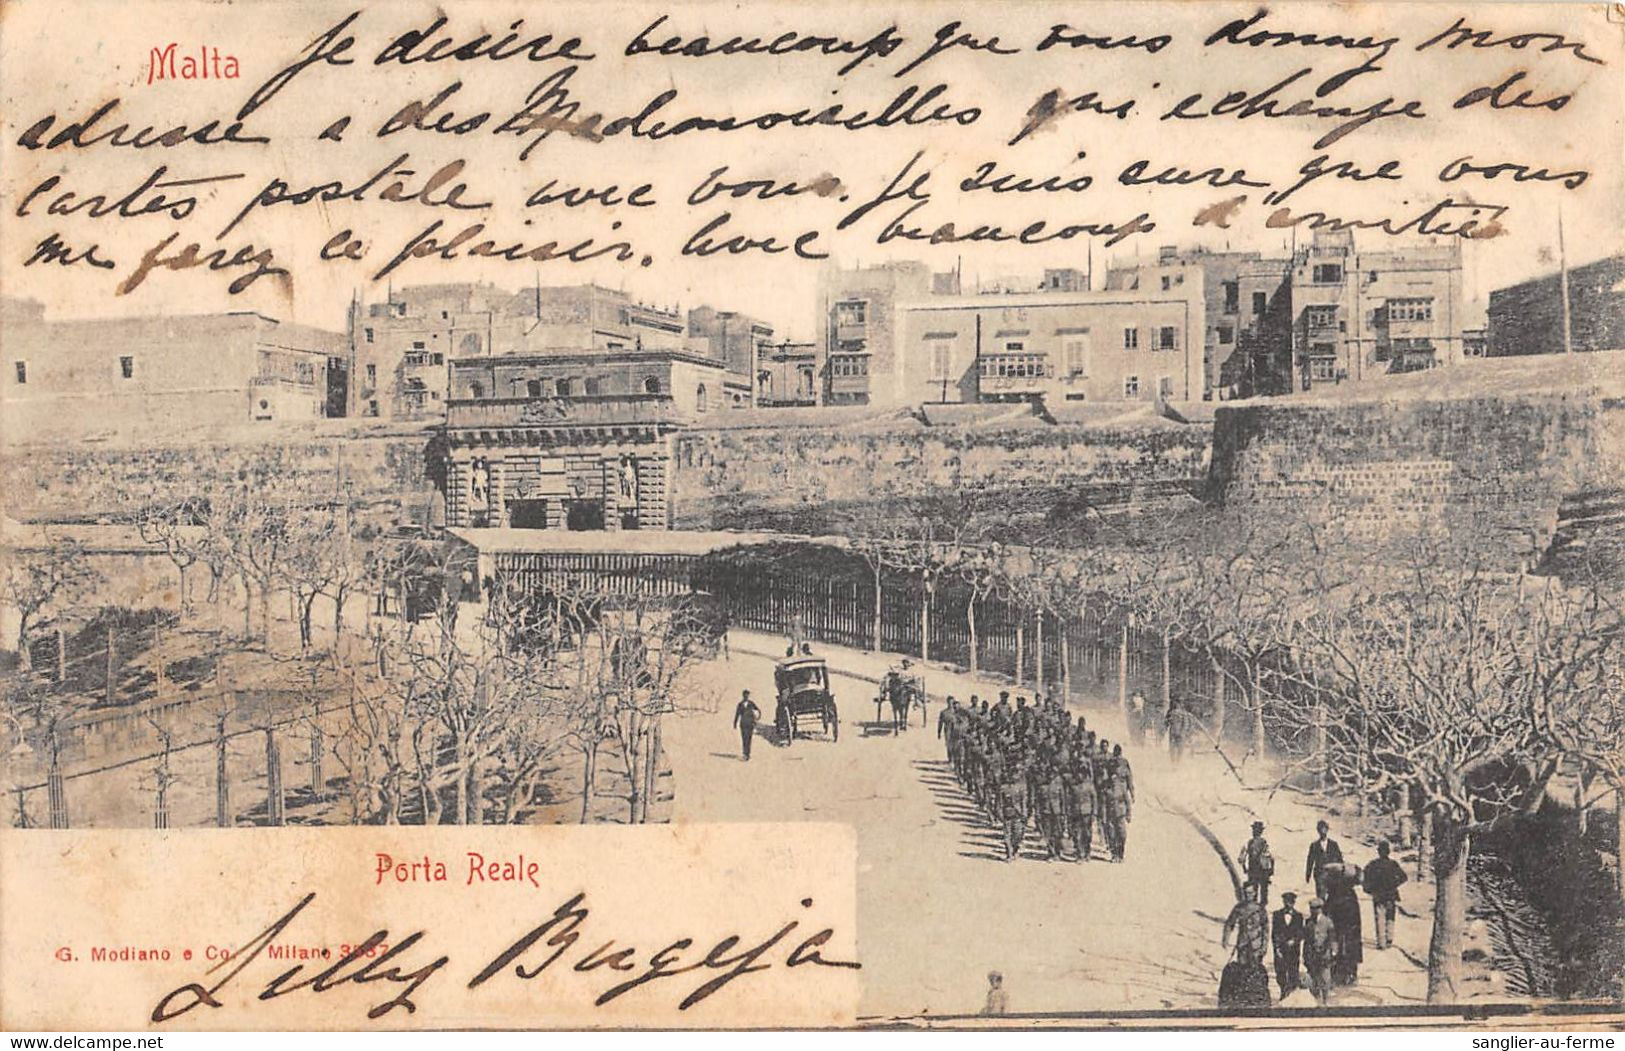 Malta
Je desire beaucoup que vous donnez mon
adresse a des Mademoiselles qui echange des
cartes postale avec vous. Je suis sure que vous
me farez ce plaisir. Avec beaucoup d'amitié
Porta Reale
G. Modiano e Co. Milano 3537
Lilly Bugeja
sanglier-au-ferme